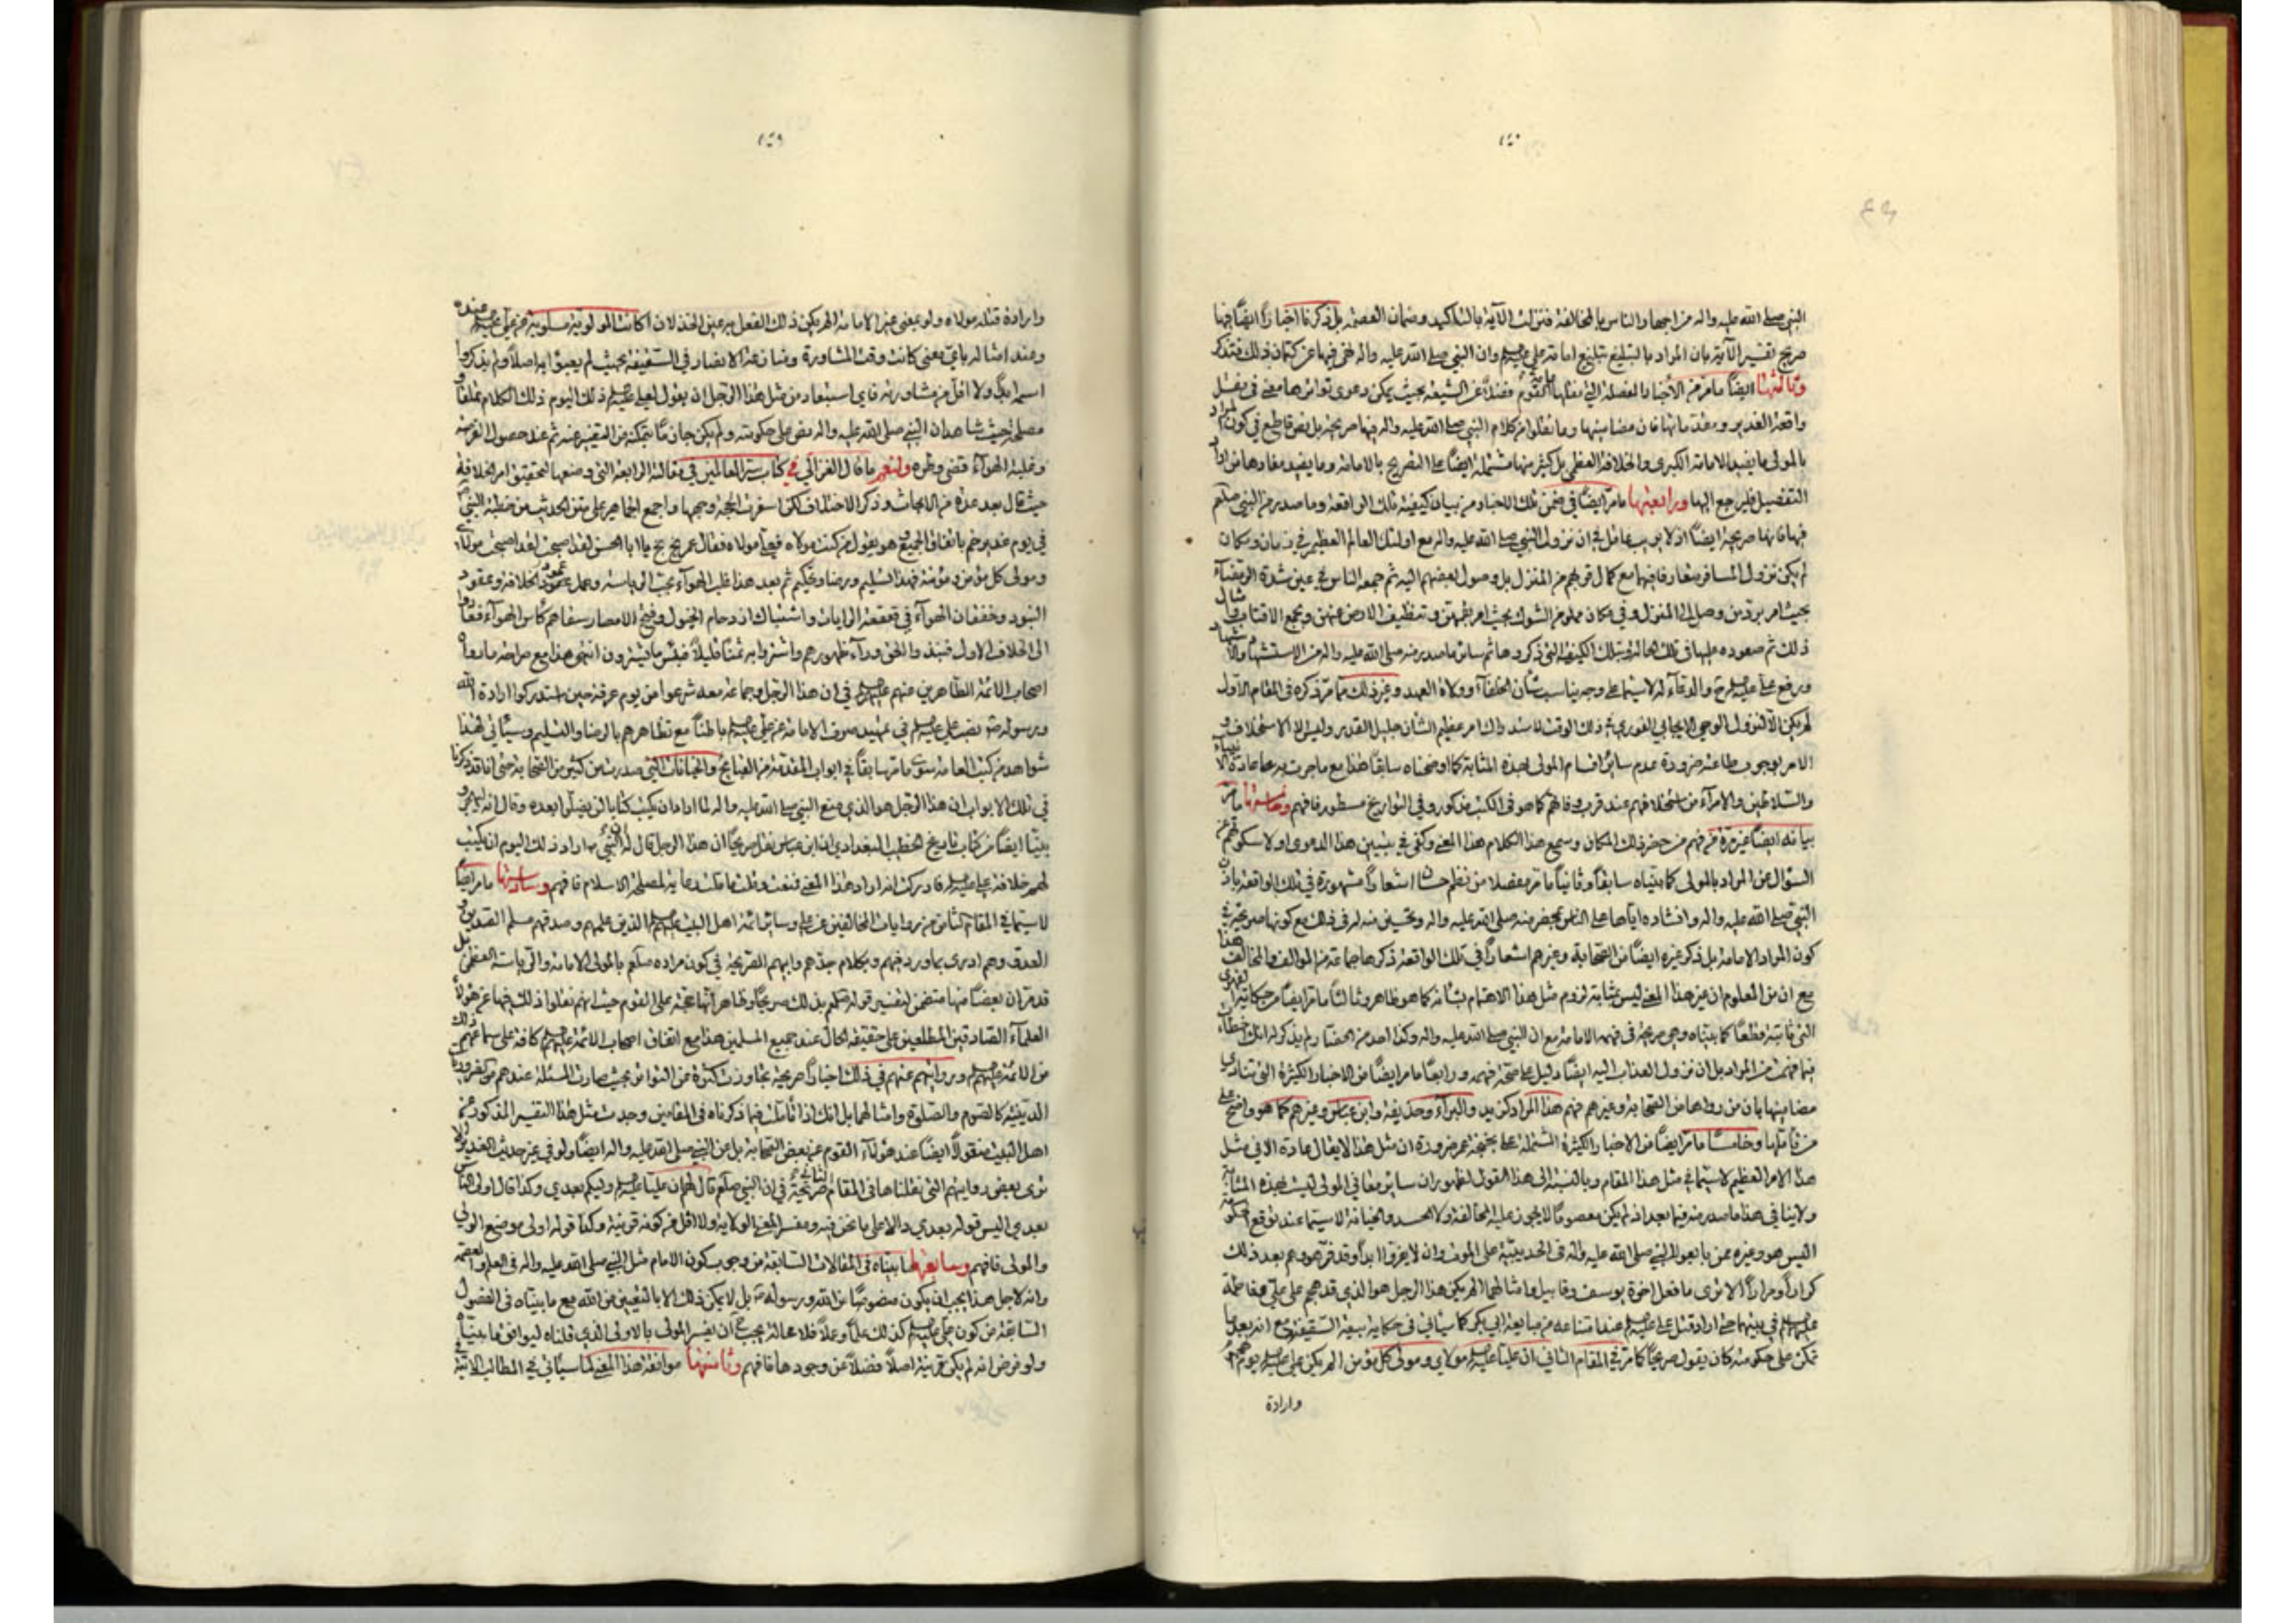 النبي صلى الله عليه واله من اجهار الناس بالمخالفة فنزلت الآية بالتاكيد وضمان العصمة بل ذكرنا اخبارا ايضا فيها
صريح تفسير الآية بان المراد بالتبليغ تبليغ امامة علي وان النبي صلى الله عليه واله فيها عن كتمان ذلك فتذكر
وثالثها ايضا ما مر من الأخبار المفصلة التي نقلها القوم فضلا عن الشيعة بحيث يمكن دعوى تواترها معنى في نقل
واقعة الغدير فان مضامينها وما نقلوا من كلام النبي صلى الله عليه واله فيها صريحة بل نص قاطع في كون المراد
بالمولى ما يفيد الامامة الكبرى والخلافة العظمى بل كثير منها مشتملة ايضا على التصريح بالامامة وما يفيد مفادها من اراد
التفصيل فليرجع اليها ورابعها ما مر ايضا في ضمن تلك الاخبار من بيان كيفية تلك الواقعة وما صدر من النبي صلعم
فيها فانها صريحة ايضا اذ لا يرتاب عاقل في ان نزول النبي صلى الله عليه واله مع اولئك العالم العظيم في زمان ومكان
لم يكن نزول المسافر متعارفا فيهما مع كمال قربهم من المنزل بل وصول بعضهم اليه ثم جمعه الناس في عين شدة الرمضاء
بحيث امر برد من وصل الى المنزل وفي مكان مملو من الشوك بحيث امر بقمهن وتنظيف الارض عنهن وبجمع الاقتاب وامثال
ذلك ثم صعوده عليها في تلك الحالة وبتلك الكيفية التي ذكروها ثم سائر ما صدر منه صلى الله عليه واله من الاستشهاد والاشهاد
ورفع علي والدعاء له لا سيما على وجه يناسب شأن الخلفاء وولاة العهد وغير ذلك مما مر ذكره في المقام الاول
لم يكن الا لنزول الوحي الايجابي الفوري في ذلك الوقت لامر عظيم الشان جليل القدر وليس الا الاستخلاف و
الامر بوجوب طاعته ضرورة عدم سائر اقسام المولى بهذه المثابة كما اوضحناه سابقا هذا مع ما جرت به عادة الانبياء
والسلاطين والامراء من استخلافهم عند قرب وفاتهم كما هو في الكتب مذكور وفي التواريخ مسطور فافهم وخامسها ما مر
بيانه ايضا غير مرة من فهم من حضر ذلك المكان وسمع هذا الكلام هذا المعنى وكفى في تبيين هذا الدعوى اولا سكوتهم عن
السؤال عن المراد بالمولى كما بيناه سابقا وثانيا ما مر مفصلا من نظم حسان اشعارا مشهورة في تلك الواقعة باذن
النبي صلى الله عليه واله وانشاده اياها على الناس بمحضر منه صلى الله عليه واله وتحسين منه له في ذلك مع كونها صريحة في
كون المراد الامامة بل ذكر غيره ايضا من الصحابة وغيرهم اشعارا في تلك الواقعة ذكرها جماعة من الموالف والمخالف هذا
مع ان من المعلوم ان غير هذا المعنى ليس بمثابة لزوم مثل هذا الاهتمام بشانه كما هو ظاهر وثالثا ما مر ايضا من حكاية الفهري
التي ثابتة قطعا كما بيناه وهي صريحة في فهمه الامامة مع ان النبي صلى الله عليه واله وكذا احد من الحضار لم يذكر له انك اخطأت
فيما فهمت من المراد بل ان نزول العذاب اليه ايضا دليل على صحة فهمه ورابعا ما مر ايضا من الاخبار الكثيرة التي تنادي
مضامينها بان من رواها من الصحابة وغيرهم فهم هذا المراد كزيد والبراء وحذيفة وابن عباس وغيرهم كما هو واضح على
من تأملها وخامسا ما مر ايضا من الاخبار الكثيرة المشتملة على بخبخة عمر ضرورة ان مثل هذا لا يقال عادة الا في مثل
هذا الامر العظيم لا سيما في مثل هذا المقام وبالنسبة الى هذا القول لظهور ان سائر معاني المولى ليست بهذه المثابة
ولا ينافي هذا ما صدر منه فيما بعد اذ لم يكن معصوما لا يجوز عليه المخالفة ولا الحسد والخيانة لا سيما عند توقع الحكومة
اليس هو وغيره ممن بايعوا النبي صلى الله عليه واله في الحديبية على الموت وان لا يفروا ابدا وقد فر هو وهم بعد ذلك
كرارا ومرارا الا ترى ما فعل اخوة يوسف وقابيل وامثالهما الم يكن هذا الرجل هو الذي قد هجم على علي وفاطمة
في بيتهما حتى اراد قتل علي عند امتناعه من مبايعة ابي بكر كما سيأتي في حكاية بيعة السقيفة مع انه بعد ما
تمكن على حكومته كان يقول صريحا كما مر في المقام الثاني ان عليا مولاي ومولى كل مؤمن الم يكن علي يوم
وارادة
وارادة قتله مولاه ولو بمعنى غير الامامة الم يكن ذلك الفعل به عين الخذلان اكانت المولوية مسلوبة عن علي عنده
وعند امثاله باي معنى كانت وقت المشاورة ومنازعة الانصار في السقيفة بحيث لم يعبؤا به اصلا ولم يذكروا
اسمه ابدا ولا اقل من مشاورته فاي استبعاد من مثل هذا الرجل ان يقول لعلي ذلك اليوم ذلك الكلام تملقا و
مصلحة حيث شاهد ان النبي صلى الله عليه واله نص على حكومته ولم يكن جازما بتمكنه من التغيير عنه ثم عند حصول الفرصة
وغلبة الهواء قضى وطره ولنعم ما قال الغزالي في كتاب سر العالمين في مقالته الرابعة التي وضعها لتحقيق امر الخلافة
حيث قال بعد عدة من الابحاث وذكر الاختلاف لكن اسفرت الحجة وجهها واجمع الجماهير على متن الحديث من خطبة النبي
في يوم غدير خم باتفاق الجميع وهو يقول من كنت مولاه فعلي مولاه فقال عمر بخ بخ يا ابا الحسن لقد اصبحت مولاي
ومولى كل مؤمن ومؤمنة فهذا تسليم ورضا وتحكيم ثم بعد هذا غلب الهواء بحب الرياسة وحمل عمود الخلافة وعقود
البنود وخفقان الهواء في قعقعة الرايات واشتباك ازدحام الخيول وفتح الامصار سقاهم كأس الهواء فعادوا
الى الخلاف الاول فنبذوا الحق وراء ظهورهم واشتروا به ثمنا قليلا فبئس ما يشترون انتهى هذا مع صراحة ما رواه
اصحاب الائمة الطاهرين عنهم في ان هذا الرجل وجماعة معه شرعوا من يوم عرفة حين استدركوا ارادة الله
ورسوله نصب علي في تمهيد صرف الامامة عن علي باطنا مع تظاهرهم بالرضا والتسليم وسيأتي لهذا
شواهد من كتب العامة سوى ما مر سابقا في ابواب المقدمة من القبايح والخيانات التي صدرت من كثير من الصحابة حتى انا قد ذكرنا
في تلك الابواب ان هذا الرجل هو الذي منع النبي صلى الله عليه واله لما اراد ان يكتب كتابا لن يضلوا بعده وقال انه ليهجر و
بينا ايضا من كتاب تاريخ الخطيب البغدادي ان ابن عباس نقل صريحا ان هذا الرجل قال له ان النبي اراد ذلك اليوم ان يكتب
لهم خلافة علي فادركت انه اراد هذا المعنى فمنعت وقلت ما قلت رعاية لمصلحة الاسلام فافهم وسادسها ما مر ايضا
لا سيما في المقام الثاني من روايات المخالفين عن علي وسائر ائمة اهل البيت الذين علمهم وصدقهم مسلم الصديق و
العدو وهم ادرى بما ورد فيهم وبكلام جدهم وابيهم الصريحة في كون مراده صلعم بالمولى الامامة والرياسة العظمى بل
قد مر ان بعضا منها متضمن لتفسير قوله صلعم بذلك صريحا وظاهر انها حجة على القوم حيث انهم نقلوا ذلك فيها عن هؤلاء
العلماء الصادقين المطلعين على حقيقة الحال عند جميع المسلمين هذا مع اتفاق اصحاب الائمة كافة على سماعهم ذلك
من الائمة وروايتهم عنهم في ذلك اخبارا صريحة تجاوزت كثرة عن التواتر بحيث صارت المسئلة عندهم من ضروريات
الدينية كالصوم والصلوة وامثالهما بل انك اذا تأملت فيما ذكرناه في المقامين وجدت مثل هذا التفسير المذكور عن
اهل البيت منقولا ايضا عند هؤلاء القوم عن بعض الصحابة بل عن النبي صلى الله عليه واله ايضا ولو في غير حديث الغدير الا
ترى بعض رواياتهم التي نقلناها في المقام صريحة في ان النبي صلعم قال لهم ان عليا وليكم بعدي وكذا قال اولى الناس
بعدي اليس قوله بعدي دالا على ما نحن فيه ومفسرا لمعنى الولاية ولا اقل من كونه قرينة وكذا قوله اولى موضع الولي
والمولى فافهم وسابعها ما بيناه في المقالات السابقة من وجوب كون الامام مثل النبي صلى الله عليه واله في العلم والعصمة
وانه لاجل هذا يجب ان يكون منصوصا من الله ورسوله بل لا يمكن ذلك الا بالتعيين من الله مع ما بيناه في الفصول
السابقة من كون علي كذلك علما وعملا فلا محالة يجب ان يفسر المولى بالاولى الذي قلناه ليوافق ما بيناه
ولو فرض انه لم يكن قرينة اصلا فضلا عن وجودها فافهم وثامنها موافقة هذا المعنى لما سيأتي في المطالب الاتية